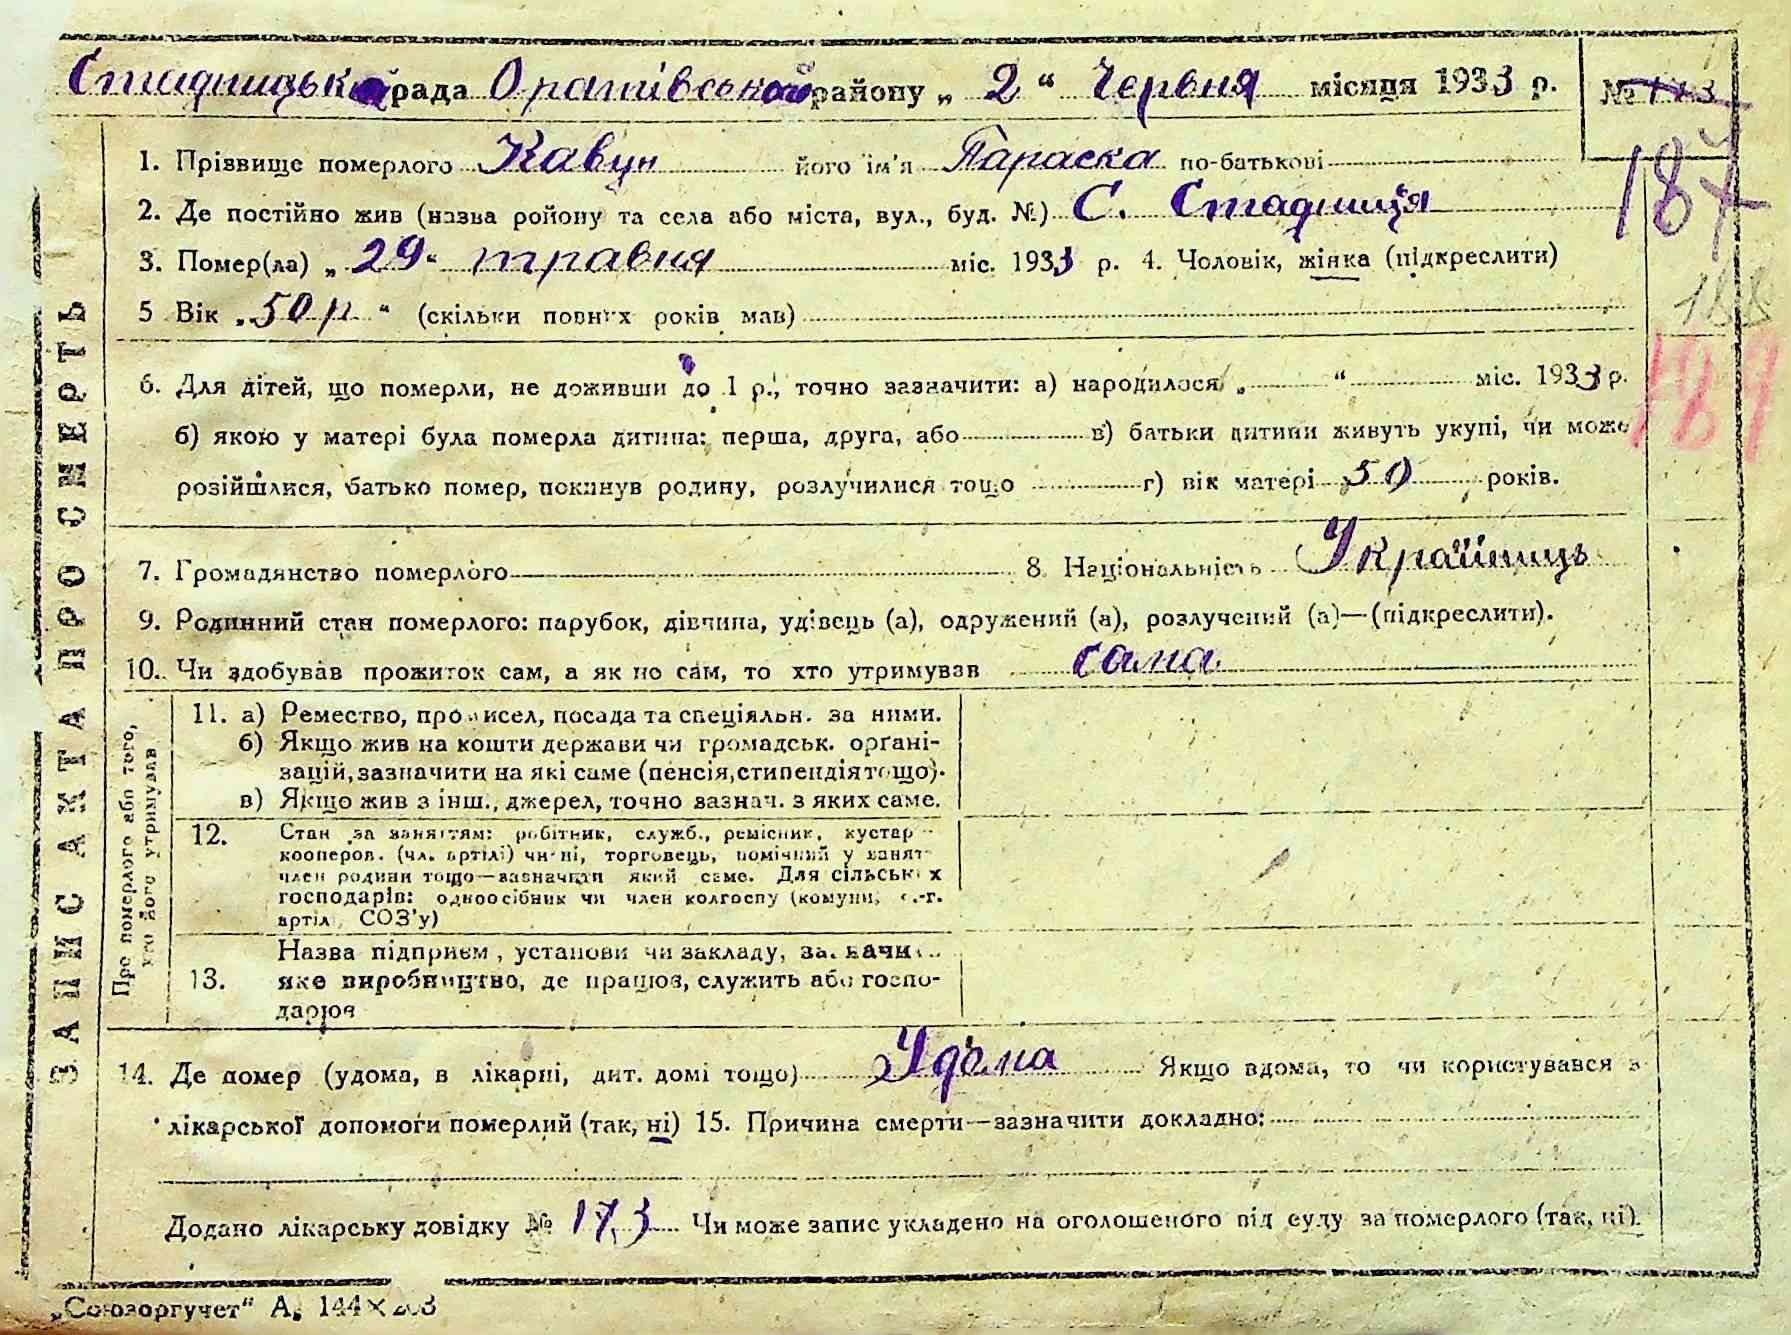 Стадницька рада Оратівського району „ 2 “ Червня місяця 1933 р.
№ 173
187
188
189
1. Прізвище померлого Кавун його ім'я Параска по-батькові
2. Де постійно жив (назва ройону та села або міста, вул., буд. №) С. Стадниця
3. Помер(ла) „ 29 “ травня міс. 1933 р. 4. Чоловік, жінка (підкреслити)
5 Вік „ 50 р “ (скільки повних років мав)
6. Для дітей, що померли, не доживши до 1 р., точно зазначити: а) народилося „ “ міс. 1933 р.
б) якою у матері була померла дитина: перша, друга, або в) батьки дитини живуть укупі, чи може
розійшлися, батько помер, покинув родину, розлучилися тощо г) вік матері 50 років.
7. Громадянство померлого 8. Національність Українць
9. Родинний стан померлого: парубок, дівчина, удівець (а), одружений (а), розлучений (а)—(підкреслити).
10. Чи здобував прожиток сам, а як не сам, то хто утримував сама
ЗАПИС АКТА ПРО СМЕРТЬ
Про померлого або того, хто його утримував
11. а) Ремество, промисел, посада та спеціяльн. за ними.
б) Якщо жив на кошти держави чи громадськ. орґані-
зацій, зазначити на які саме (пенсія, стипендія тощо).
в) Якщо жив з інш., джерел, точно зазнач. з яких саме.
12. Стан за заняттям: робітник, служб., ремісник, кустар
кооперов. (чл. артілі) чи ні, торговець, помічний у занят
член родини тощо—зазначити який саме. Для сільських
господарів: одноосібник чи член колгоспу (комуни, с.-г.
артіл, СОЗ'у)
13. Назва підприєм, установи чи закладу, зазначи
яке виробництво, де працюв, служить або госпо-
дарюв
14. Де помер (удома, в лікарні, дит. домі тощо) Удома Якщо вдома, то чи користувався з
лікарської допомоги померлий (так, ні) 15. Причина смерти—зазначити докладно:
Додано лікарську довідку № 173 Чи може запис укладено на оголошеного від суду за померлого (так, ні).
„Союзоргучет“ А, 144×203